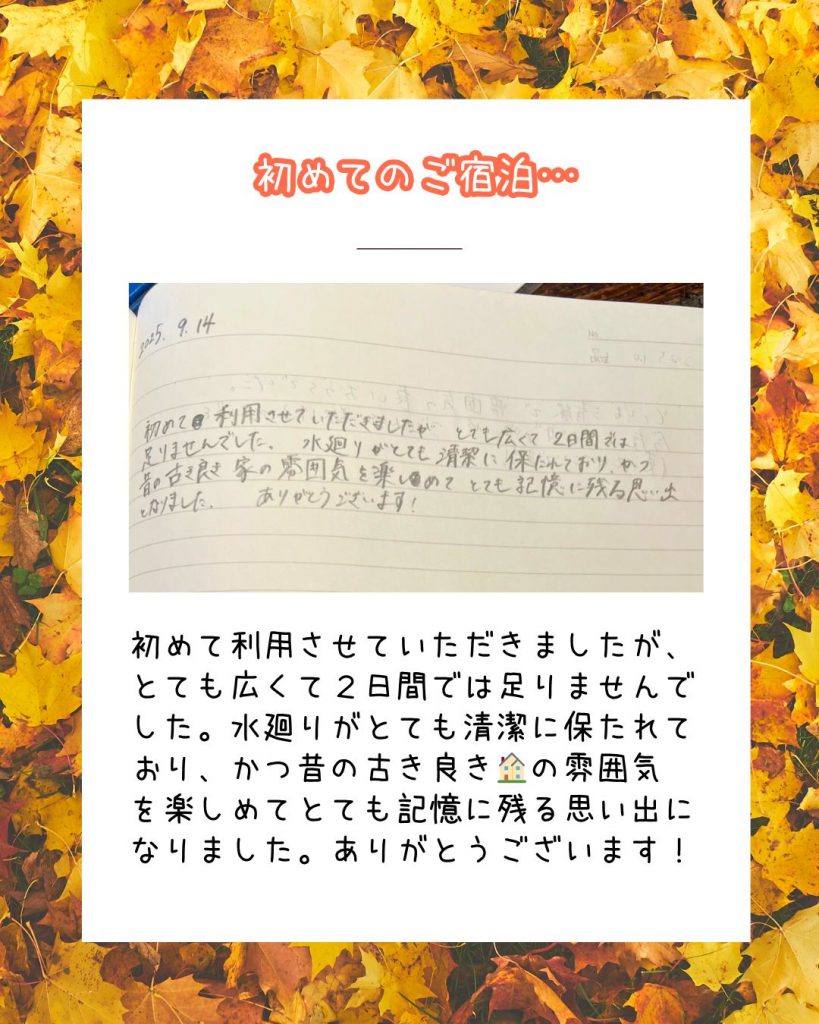 初めてのご宿泊…
2025. 9. 14
初めて 利用させていただきましたが とても広くて 2日間では
足りませんでした。 水廻りがとても 清潔に 保たれており、かつ
昔の古き良き 家の雰囲気を楽しめて とても記憶に残る思い出
となりました。 ありがとうございます!
初めて利用させていただきましたが、
とても広くて2日間では足りませんで
した。水廻りがとても清潔に保たれて
おり、かつ昔の古き良き🏠の雰囲気
を楽しめてとても記憶に残る思い出に
なりました。ありがとうございます!